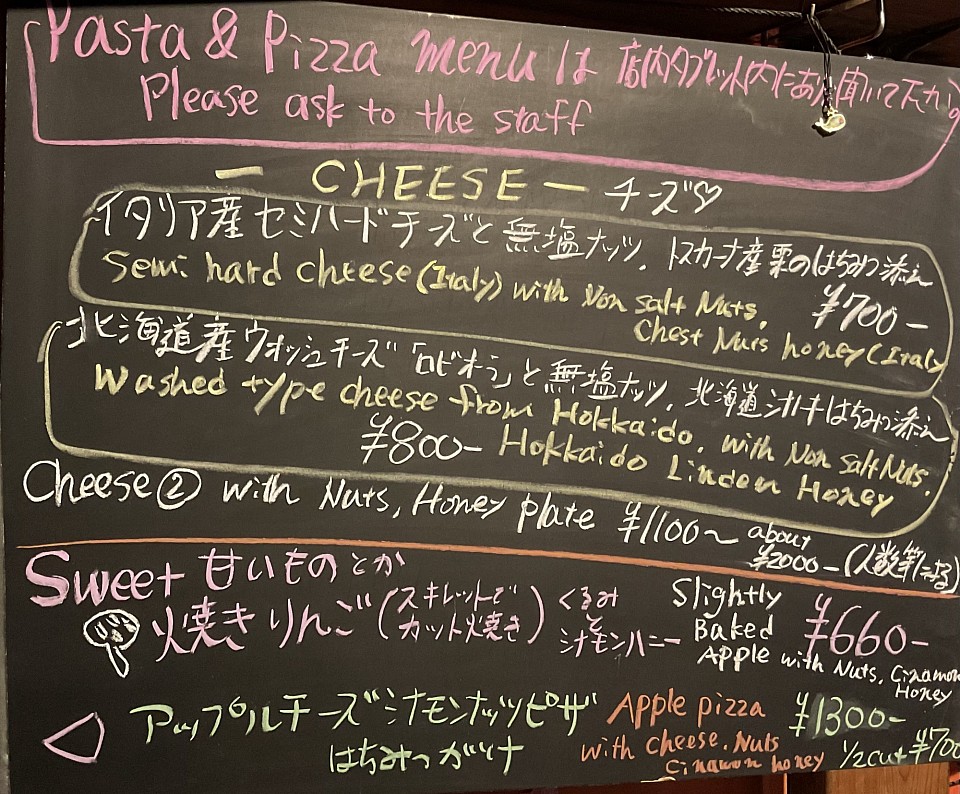 Pasta & Pizza menu は 店内タブレット内にあり聞いて下さい
Please ask to the staff
— CHEESE — チーズ♡
イタリア産セミハードチーズと無塩ナッツ、トスカーナ産栗のはちみつ添え
Semi hard cheese (Italy) with Non salt Nuts, ¥700-
Chest Nuts honey (Italy
北海道産ウォッシュチーズ「ロビオーラ」と無塩ナッツ、北海道シナノキはちみつ添え
Washed type cheese from Hokkaido, with Non Salt Nuts.
¥800- Hokkaido Linden Honey
Cheese② with Nuts, Honey plate ¥1100~ about
¥2000- (人数等による)
Sweet 甘いものとか
焼きりんご(スキレットでカット焼き) くるみとシナモンハニー
Slightly Baked Apple with Nuts, Cinamon Honey ¥660-
アップルチーズシナモンナッツピザ
はちみつがけ
Apple pizza ¥1300-
with cheese. Nuts
Cinamon honey 1/2cut ¥700